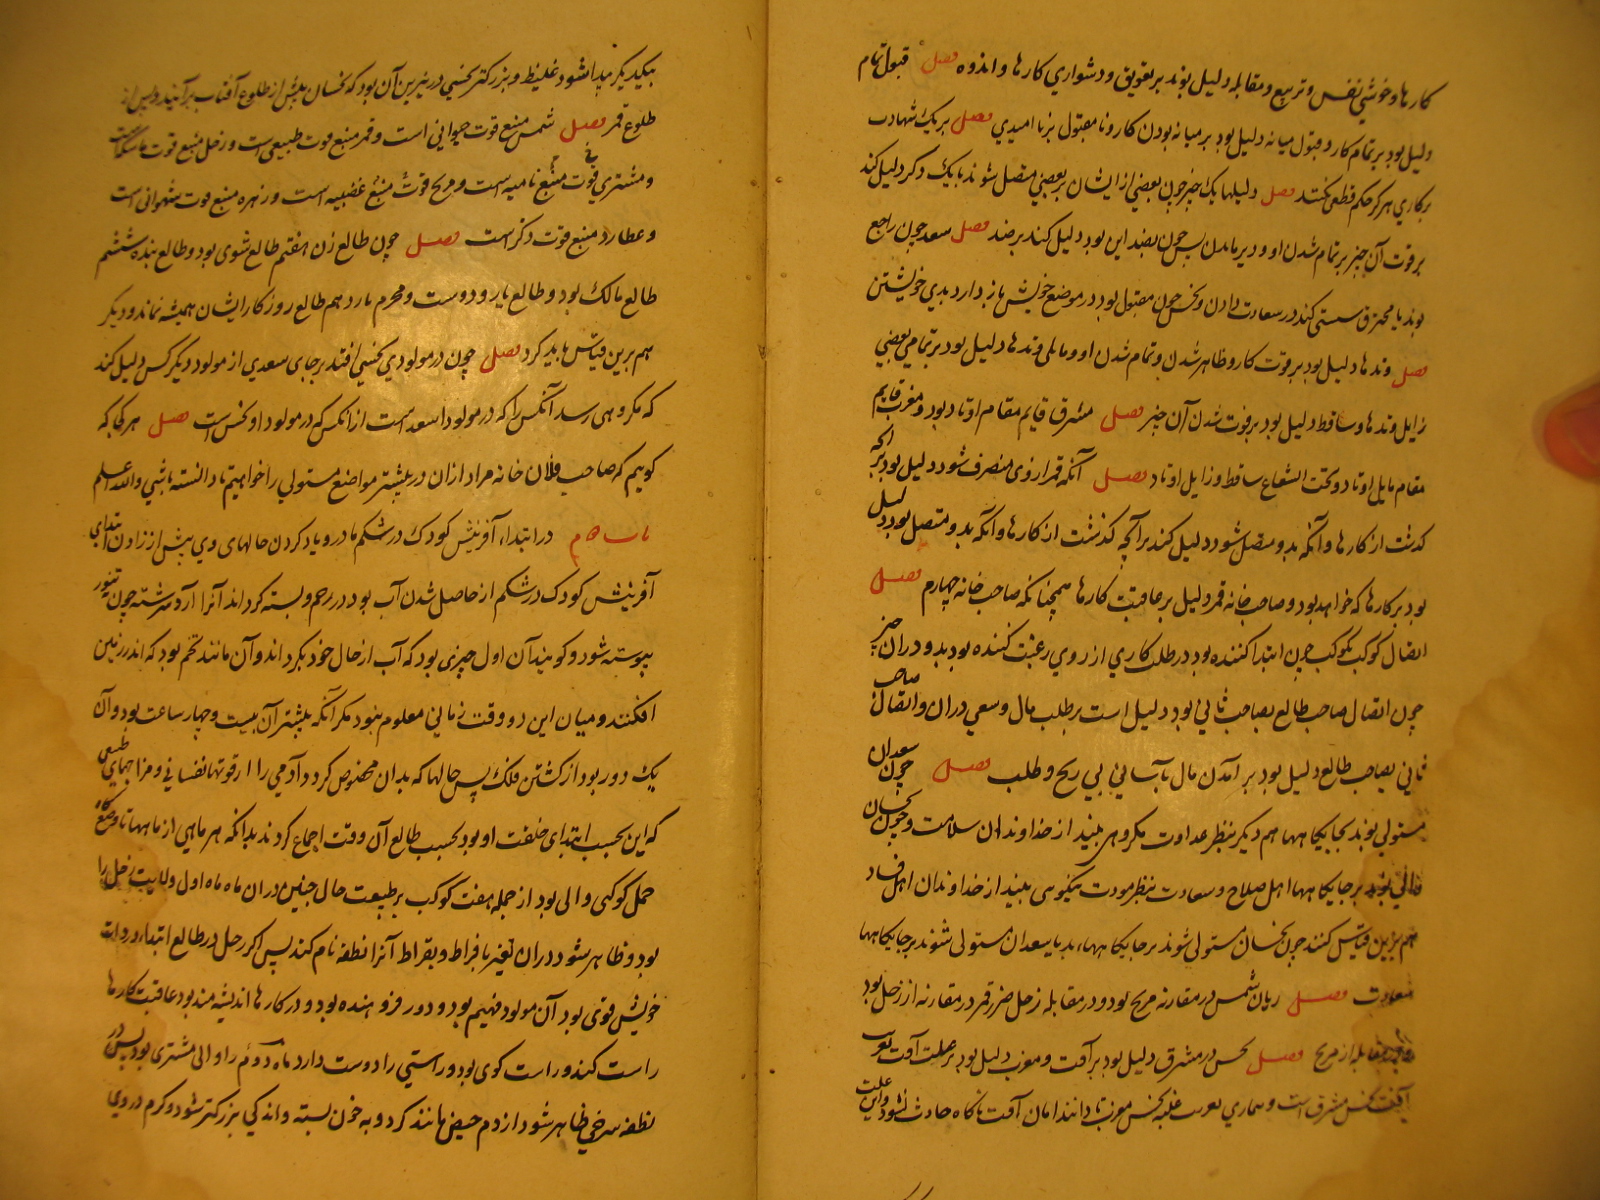 کارها و خوشی نفس و تربیع و مقابله دلیل بوند بر تعویق و دشواری کارها و اندوه فصل قبول تمام
دلیل بود بر تمام کار و قبول میانه دلیل بود بر میانه بودن کار و نامقبول بر ناامیدی فصل بر یک شهادت
بر کاری هرگز حکم قطعی نکنند فصل دلیلها یک چیز چون بعضی از ایشان بر بعضی متصل شوند با یک دگر دلیل کند
بر قوت آن چیز بر تمام شدن او و دیر ماندن پس چون بضد این بود دلیل کند بر ضد فصل سعد چون راجع
بوند یا محترق سستی کند در سعادت دادن و نحس چون مقبول بود در موضع خویش باز دارد بدی خویشتن
فصل وتدها دلیل بود بر قوت کار و ظاهر شدن و تمام شدن او و مایلی وتدها دلیل بود بر تمامی بعضی
زایل وتدها و ساقط دلیل بود بر فوت شدن آن چیز فصل مشرق قایم مقام اوتاد بود و مغرب قایم
مقام مایل اوتاد و تحت الشعاع ساقط و زایل اوتاد فصل آنکه قمر از وی منصرف شود دلیل بود بر آنچه
گذشت از کارها و آنکه بدو متصل شود دلیل کند بر آنچه گذشت از کارها و آنکه بدو متصل بود دلیل
بود بر کارها که خواهد بود و صاحب خانه قمر دلیل بر عاقبت کارها همچنانکه صاحب خانه چهارم فصل
اتصال کوکب بکوکب چون ابتدا کننده بود در طلب کاری از روی رغبت کننده بود بدو در آن چیز
چون اتصال صاحب طالع بصاحب ثانی بود دلیل است بر طلب مال و سعی در آن و اتصال صاحب
ثانی بصاحب طالع دلیل بود بر آمدن مال بآسانی بی رنج و طلب فصل چون سعدان
مستولی بوند بجایگاهها هم دیگر بنظر عداوت مکروهی بینند از خداوندان سلامت و چون نحسان
بر جایگاهها اهل صلاح و سعادت بنظر مودت نیکویی بینند از خداوندان اهل فساد
هم برین قیاس کنند چون نحسان مستولی شوند بر جایگاهها بد یا سعدان مستولی شوند بر جایگاهها
سعادت فصل زیان شمس در مقارنه مریخ بود و در مقابله زحل ضرر قمر در مقارنه از زحل بود
مقابله از مریخ فصل نحس در مشرق دلیل بود بر آفت و مغرب دلیل بود بر علت آفت
آفت نحس مشرق است و بیماری غلبه نحس مغرب تا دانند امان آفت ناگاه حادث شود و این علت
بیکدیگر پیدا شود غلیظ و بزرگتر نحسی در نیرین آن بود که نحسان پیش از طلوع آفتاب برآیند و پس از
طلوع قمر فصل شمس منبع قوت حیوانی است و قمر منبع قوت طبیعی است و زحل منبع قوت ماسکه است
و مشتری قوت منبع نامیه است و مریخ قوت منبع غضبیه است و زهره منبع قوت شهوانی است
و عطارد منبع قوت ذکر است فصل چون طالع زن هفتم طالع شوی بود و طالع بنده ششم
طالع مالک بود و طالع یار و دوست و محرم یازدهم طالع روز کار ایشان همیشه نماند و دیگر
هم برین قیاس باید کرد فصل چون در مولودی نحسی افتد بر جای سعدی از مولود دیگر کس دلیل کند
که مکروهی رسد آنکس را که در مولود او سعد است از آنکس که در مولود او نحس است فصل هر کجا که
گوییم که صاحب فلان خانه مراد از آن در بیشتر مواضع مستولی را خواهیم تا دانسته باشی والله اعلم
باب در ابتداء آفرینش کودک در شکم مادر و یاد کردن حالهای وی پیش از زادن ابتدای
آفرینش کودک در شکم از حاصل شدن آب بود در رحم و بسته گرداند آنرا آرد سرشته چون بتنور
پیوسته شود و گویند آن اول چیزی بود که آب از حال خود بگرداند و آن مانند تخم بود که اندر زمین
افکنند و میان این دو وقت زمانی معلوم نبود مگر آنکه بیشتر آن بیست و چهار ساعت بود و آن
یک دور بود از گشتن فلک پس حالها که بدان مخصوص گردد آدمی را از قوتها نفسانی و مزاجهای طبعی
که این بحسب ابتدای خلقت او بود بحسب طالع آن وقت اجماع کردند بدانکه هر ماهی از ماهها تا وضع
حمل کوکبی والی بود از جمله هفت کوکب بر طبیعت حال جنین در آن ماه ماه اول ولایت زحل را
بود و ظاهر شود در آن تغیر با فراط و بقراط آنرا نطفه نام کند پس اگر زحل در طالع ابتداء در ذات
خویش قوی بود آن مولود فهیم بود و دور فرو هنده بود و در کارها اندیشه مند بود عاقبت کارها
راست کند و راست گوی بود و راستی را دوست دارد ماه دوم را والی مشتری بود پس در
نطفه سرخی ظاهر شود از دم حیض مانند گردد به خون بسته و اندکی بزرگتر شود و گرم در وی